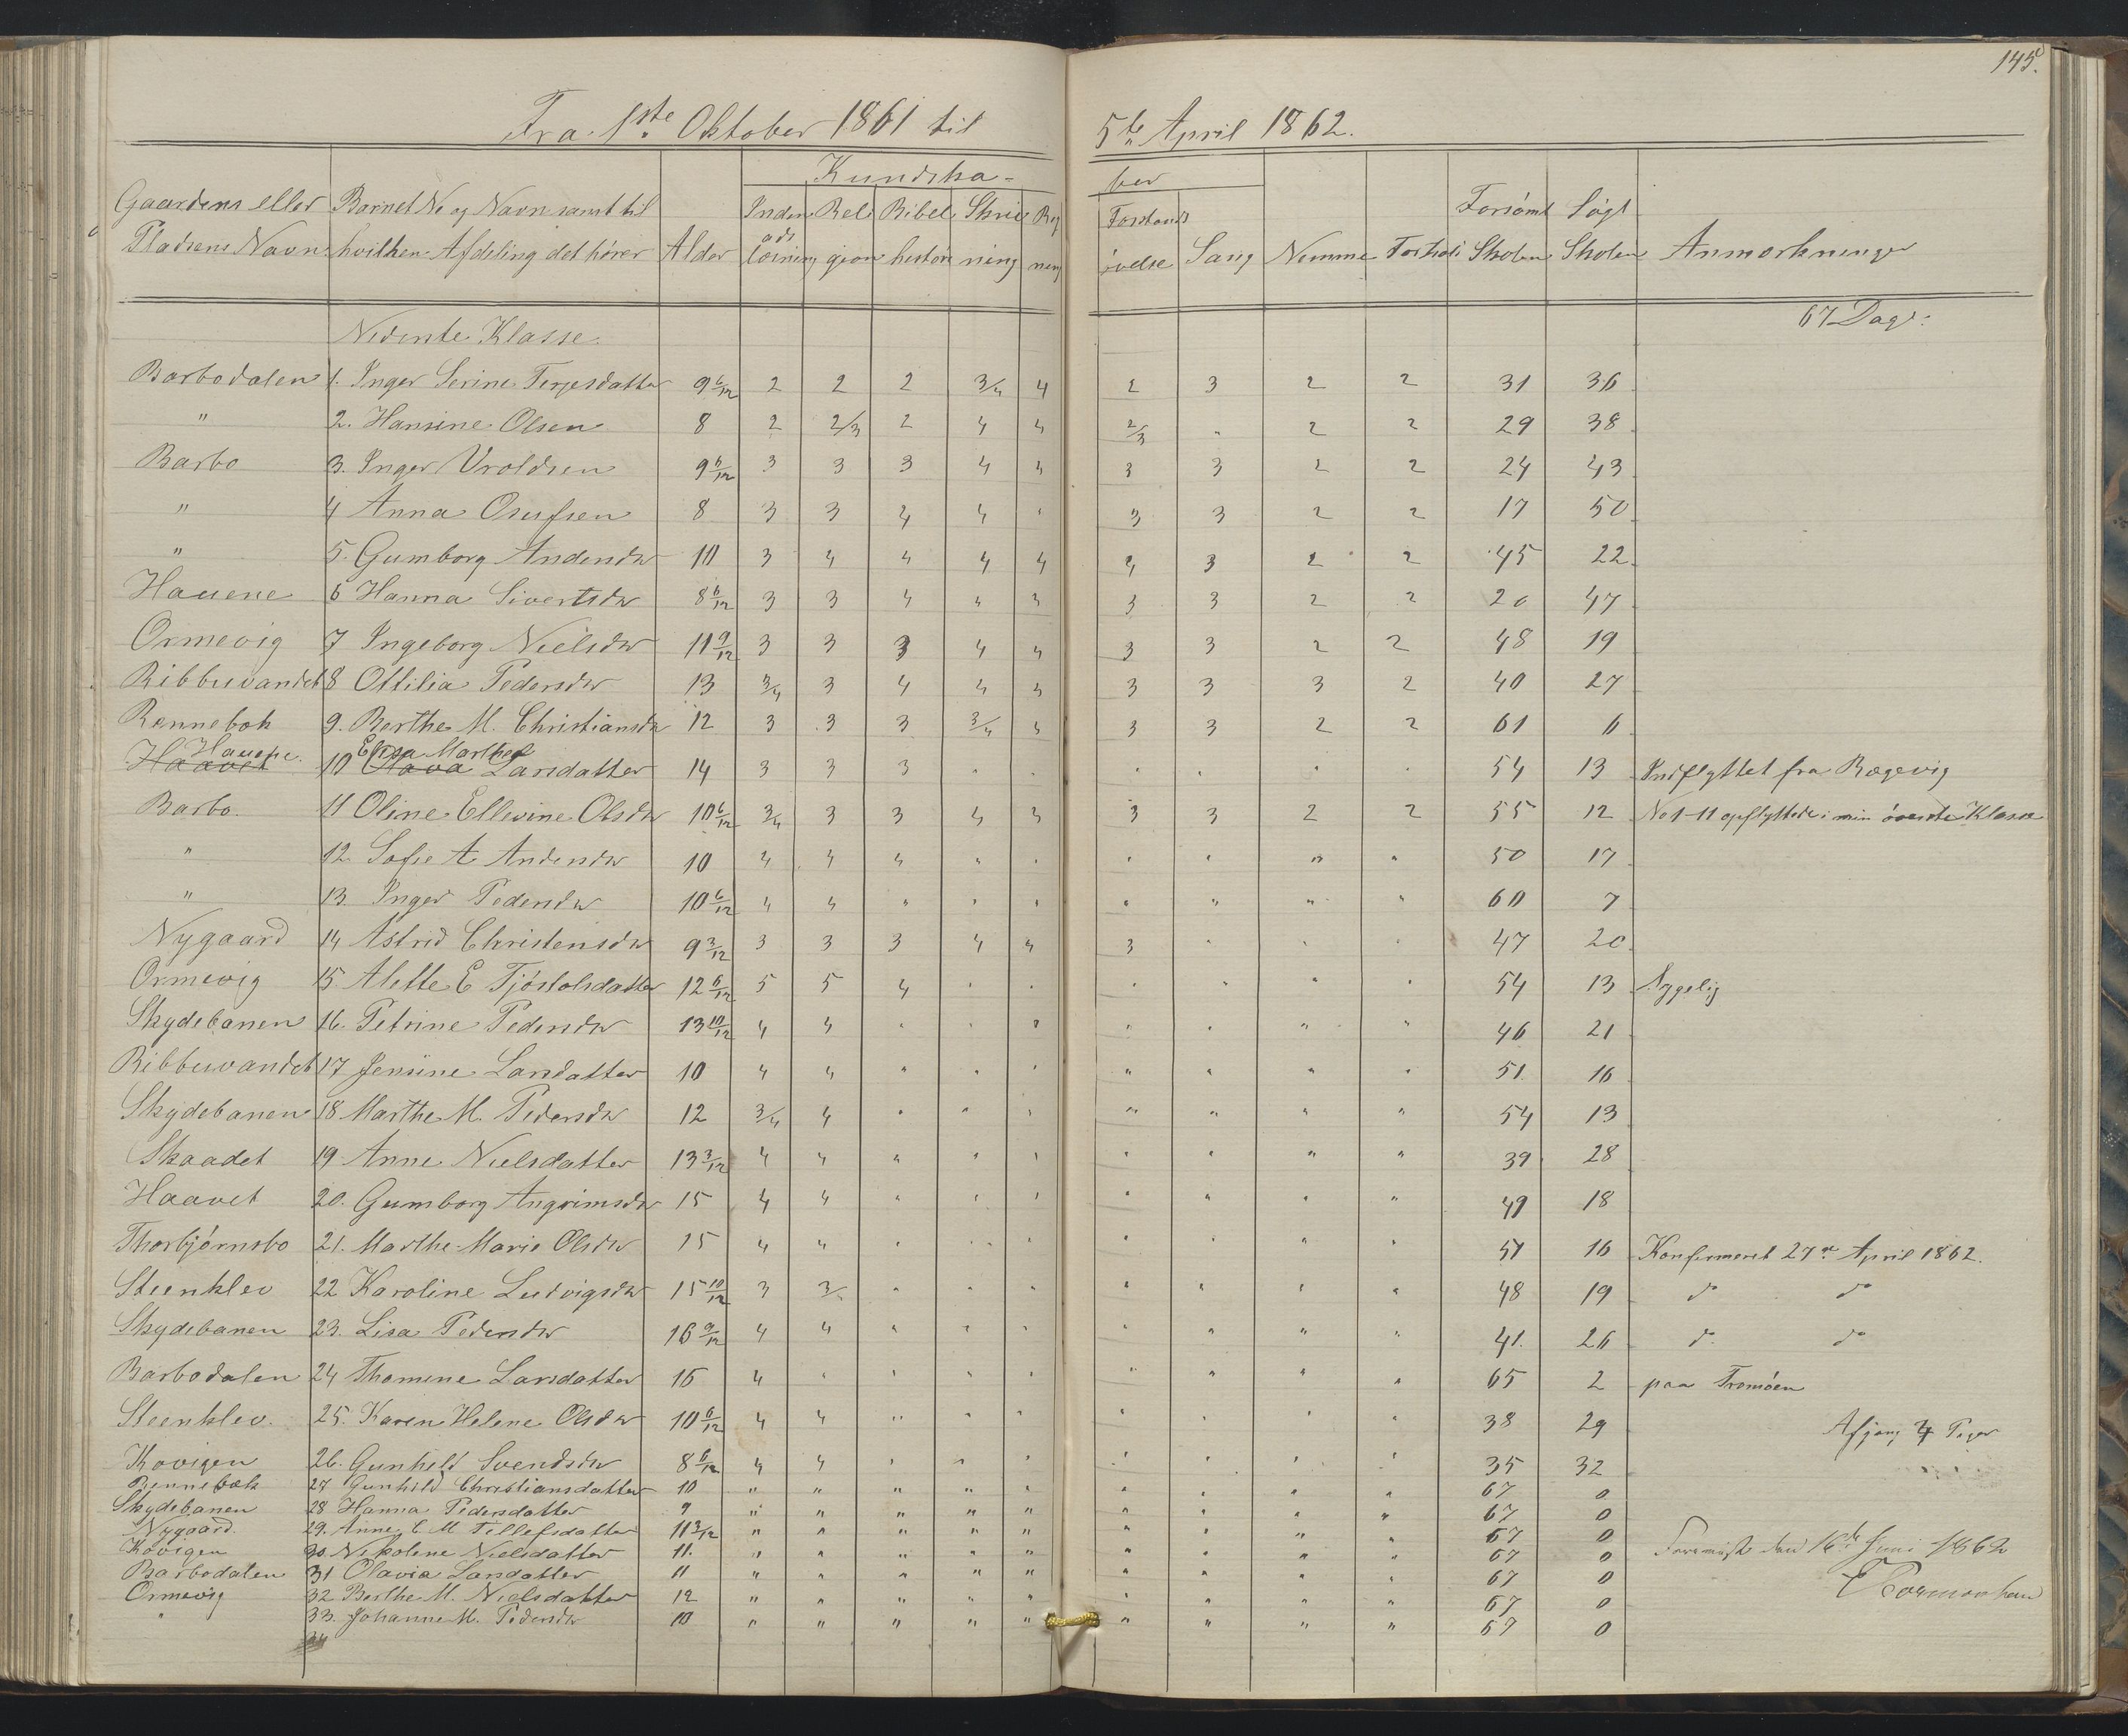 145.
Fra 1ste Oktober 1861 til 5te April 1862.
Kundska- ber
Gaardens eller Barnet No og Navn samt til Inden Reli Bibel Skriv Reg Forstands Forsömt Sögt
Pladsens Navn hvilken Afdeling det hörer Alder ads læsning gion histori ning ning övelse Sang Nemme Forhold Skolen Skolen Anmærkninger
Nederste Klasse. 67 Dage:
Barbodalen 1. Inger Serine Terjesdatter 9 6/12 2 2 2 3/4 4 2 3 2 2 31 36
" 2. Hansine Olsen 8 2 2/3 2 4 4 2/3 " 2 2 29 38
Barbo 3. Inger Vroldsen 9 6/12 3 3 3 4 4 3 3 2 2 24 43
" 4 Anna Osufsen 8 3 3 4 4 " 3 3 2 2 17 50
" 5. Gumborg Andersdtr 10 3 4 4 4 4 4 3 2 2 45 22
Hauene 6 Hanna Sivertsdtr 8 6/12 3 3 4 4 3 3 3 2 2 20 47
Ormevig 7 Ingeborg Nielsdtr 11 9/12 3 3 3 4 4 3 3 2 2 48 19
Ribbuvandet 8 Ottilia Pedersdtr 13 3/4 3 4 4 4 3 3 3 2 40 27
Rennebæk 9. Berthe M. Christiansdtr 12 3 3 3 3/4 4 3 3 2 2 61 6
Hauene. Elisa Marthea
Haavet 10 Olava Larsdatter 14 3 3 3 " " " " " " 54 13 Indflyttet fra Rægevig
Barbo. 11 Oline Ellevine Olsdtr 10 6/12 3/4 3 3 4 3 3 3 2 2 55 12 No 1-11 opflyttede i min överste Klasse
" 12. Sofie A Andersdtr 10 4 4 4 " " " " " " 50 17
" 13. Inger Pedersdtr 10 6/12 4 4 " " " " " " " 60 7
Nygaard 14 Astrid Christensdtr 9 3/12 3 3 3 4 4 3 " " " 47 20
Ormevig 15. Alette E Tjöstolsdatter 12 6/12 5 5 4 " " " " " " 54 13 Sygelig
Skydebanen 16. Petrine Pedersdtr 13 10/12 4 4 " " " " " " " 46 21
Ribbuvandet 17 Jensine Larsdatter 10 4 4 " " " " " " " 51. 16
Skydebanen 18 Marthe M. Pedersdtr 12 3/4 4 " " " " " " " 54 13
Skaadet 19 Anne Nielsdatter 13 3/12 4 4 " " " " " " " 39 28
Haavet 20. Gumborg Angrimsdtr 15 4 4 " " " " " " " 49 18
Thorbjörnsbo 21. Marthe Marie Olsdtr 15 4 4 " " " " " " " 51 16 Konfirmeret 27de April 1862.
Steenklev 22 Karoline Ludvigsdtr 15 10/12 3 3/4 " " " " " " " 48 19 do do
Skydebanen 23. Lisa Pedersdtr 16 9/12 4 4 " " " " " " " 41. 26 do do
Barbodalen 24 Thomine Larsdatter 16 4 " " " " " " " " 65 2 paa Tromöen
Steenklev. 25. Karen Helene Olsdtr 10 6/12 4 4 " " " " " " " 38 29 Afgang 4 Piger
Kovigen 26. Gunhild Svendsdtr 8 6/12 4 4 " " " " " " " 35 32
Rennebæk 27 Gunhild Christiansdatter 10 " " " " " " " " " 67 0
Skydebanen 28 Hanna Pedersdatter 9 " " " " " " " " " 67 0
Nygaard. 29. Anne E M Tellefsdatter 11 3/12 " " " " " " " " " 67 0
Kovigen 30. Nikoline Nielsdatter 11. " " " " " " " " " 67 0 Foreviist den 16de Juni 1862
Barbodalen 31 Olavia Larsdatter 11 " " " " " " " " " 67 0
Ormevig 32 Berthe M. Nielsdatter 12 " " " " " " " " " 67 0
" 33. Johanne M. Pedersdtr 10 " " " " " " " " " 67 0
34